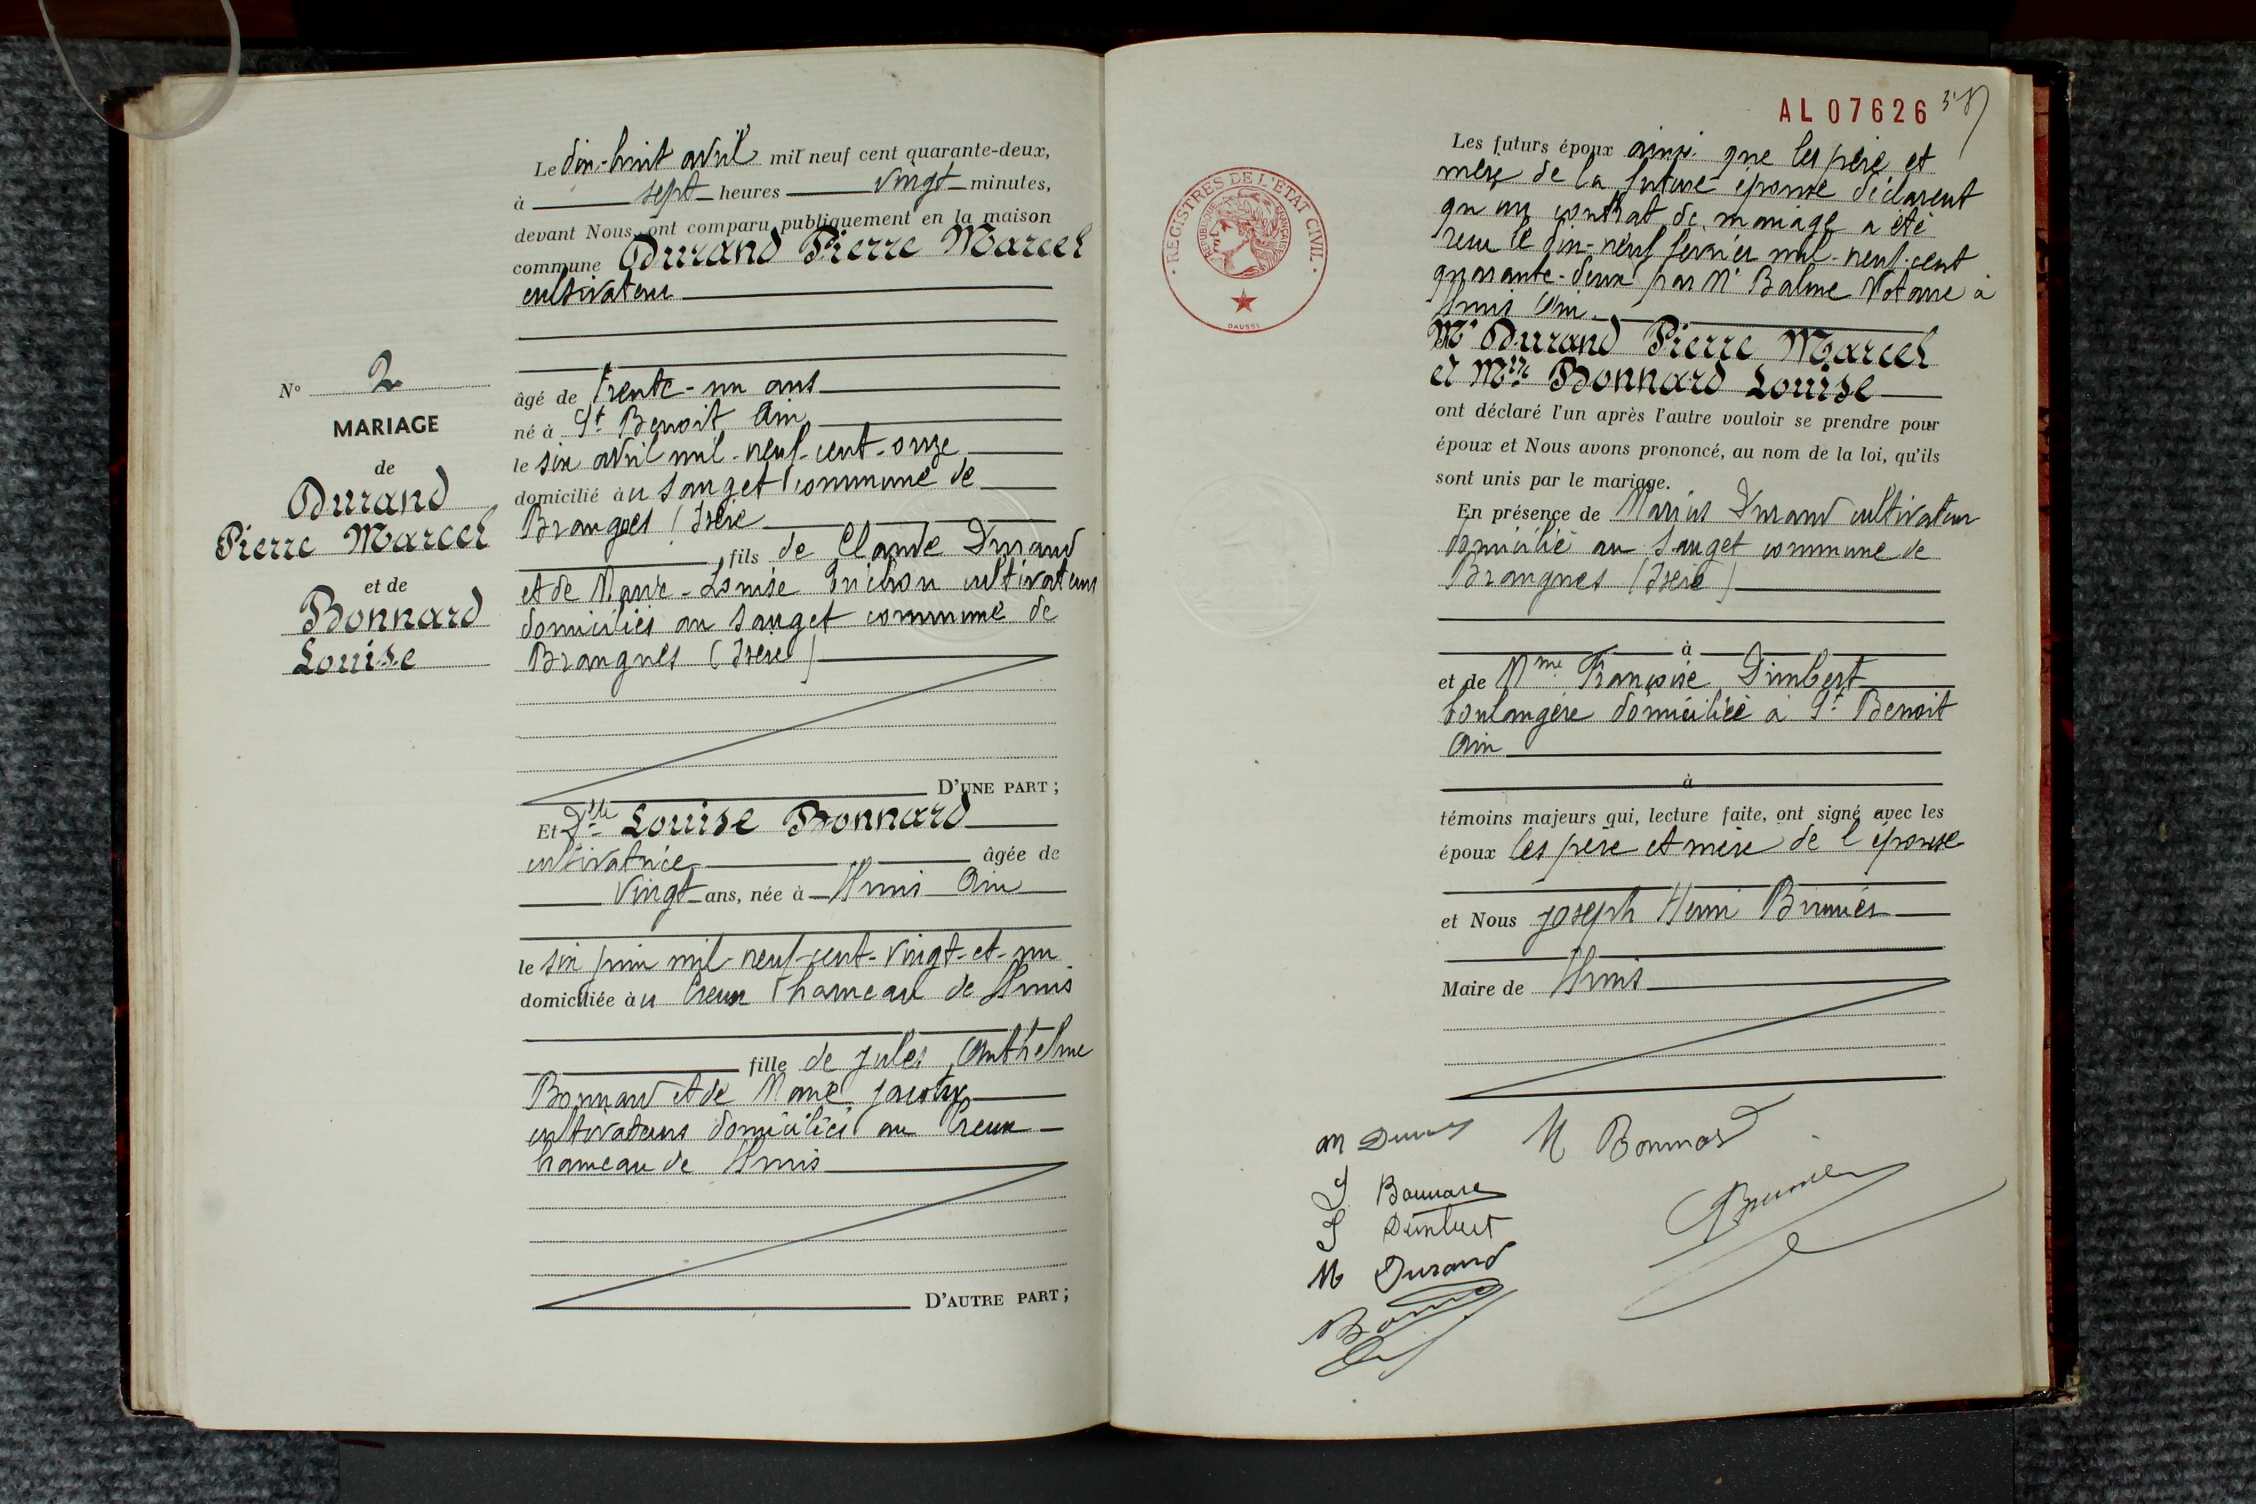 Le dix-huit avril mil neuf cent quarante-deux,
à sept heures vingt minutes,
devant Nous ont comparu publiquement en la maison
commune Durand Pierre Marcel
cultivateur
N° 2
MARIAGE
de
Durand
Pierre Marcel
et de
Bonnard
Louise
âgé de trente-un ans
né à St Benoit Ain
le six avril mil-neuf-cent-onze
domicilié au Sauget commune de
Brangues (Isère
fils de Claude Durand
et de Marie-Louise Guichon cultivateurs
domiciliés au Sauget commune de
Brangues (Isère)
D'UNE PART ;
Et Dlle Louise Bonnard
cultivatrice âgée de
vingt ans, née à Lhuis Ain
le six juin mil-neuf-cent-vingt-et-un
domiciliée au Creux hameau de Lhuis
fille de Jules Anthelme
Bonnard et de Marie
cultivateurs domiciliés au Creux
hameau de Lhuis
D'AUTRE PART ;
REGISTRES DE L'ETAT CIVIL
REPUBLIQUE FRANÇAISE
DAUSSY
AL 07626
Les futurs époux ainsi que les père et
mère de la future épouse déclarent
qu'un contrat de mariage a été
reçu le dix-neuf février mil-neuf-cent
quarante-deux par Me Balme Notaire à
Lhuis Ain
Mr Durand Pierre Marcel
et Mlle Bonnard Louise
ont déclaré l'un après l'autre vouloir se prendre pour
époux et Nous avons prononcé, au nom de la loi, qu'ils
sont unis par le mariage.
En présence de Marius Durand cultivateur
domicilié au Sauget commune de
Brangues (Isère)
à
et de Mme Françoise Dimbert
boulangère domiciliée à St Benoit
Ain
à
témoins majeurs qui, lecture faite, ont signé avec les
époux les père et mère de l'épouse
et Nous Joseph Henri Brunier
Maire de Lhuis
M Durand M Bonnard
Bonnard
Dimbert
Brunier
M Durand